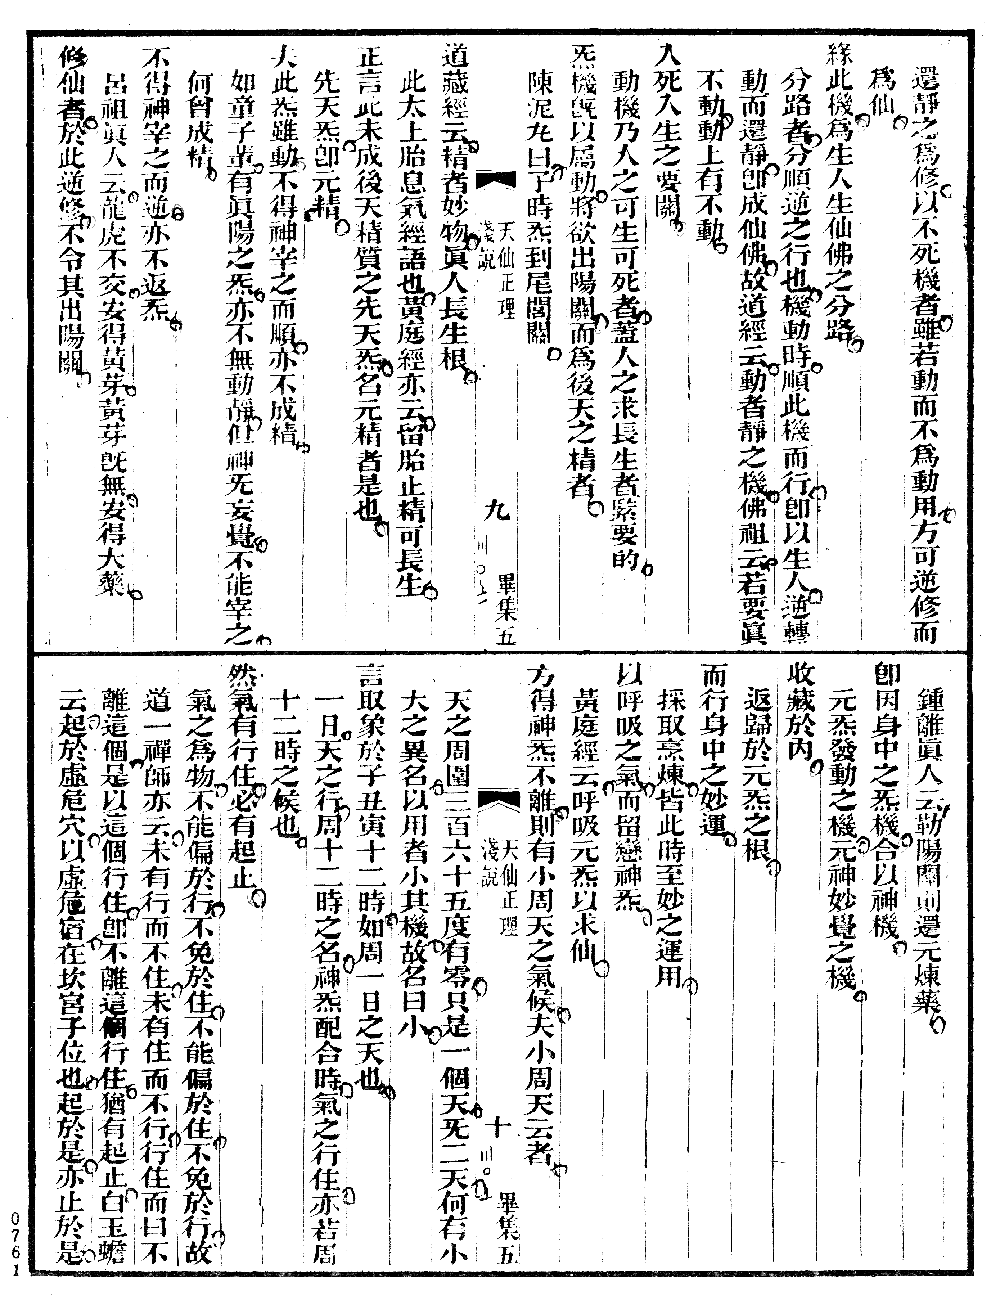 還靜之爲修以不死機者雖若動而不爲動用方可逆修而
爲仙
緣此機爲生人生仙佛之分路
分路者分順逆之行也機動時順此機而行卽以生人逆轉
動而還靜卽成仙佛故道經云動者靜之機佛祖云若要眞
不動動上有不動
入死入生之要關
動機乃人之可生可死者蓋人之求長生者緊要的
炁機旣以屬動將欲出陽關而爲後天之精者
陳泥丸曰子時炁到尾閭關
天仙正理
淺說
九
畢集五
道藏經云精者妙物眞人長生根
此太上胎息氣經語也黃庭經亦云留胎止精可長生
正言此未成後天精質之先天炁名元精者是也
先天炁卽元精
夫此炁雖動不得神宰之而順亦不成精
如童子輩有眞陽之炁亦不無動靜但神无妄覺不能宰之
何曾成精
不得神宰之而逆亦不返炁
呂祖眞人云龍虎不交安得黃芽黃芽旣無安得大藥
修仙者於此逆修不令其出陽關
鍾離眞人云勒陽關則還元煉藥
卽因身中之炁機合以神機
元炁發動之機元神妙覺之機
收藏於內
返歸於元炁之根
而行身中之妙運
採取烹煉皆此時至妙之運用
以呼吸之氣而留戀神炁
黃庭經云呼吸元炁以求仙
方得神炁不離則有小周天之氣候夫小周天云者
天仙正理
淺說
十
畢集五
天之周圍三百六十五度有零只是一個天旡二天何有小
大之異名以用者小其機故名曰小
言取象於子丑寅十二時如周一日之天也
一日天之行周十二時之名神炁配合時氣之行住亦若周
十二時之候也
然氣有行住必有起止
氣之爲物不能偏於行不免於住不能偏於住不免於行故
道一禪師亦云未有行而不住未有住而不行行住而曰不
離這個是以這個行住卽不離這個行住猶有起止白玉蟾
云起於虛危穴以虛危宿在坎宮子位也起於是亦止於是
0761